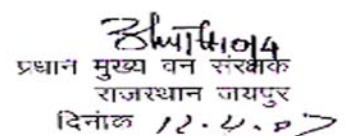 प्रधान मुख्य वन संरक्षक
राजस्थान जयपुर
दिनांक 12.4.07